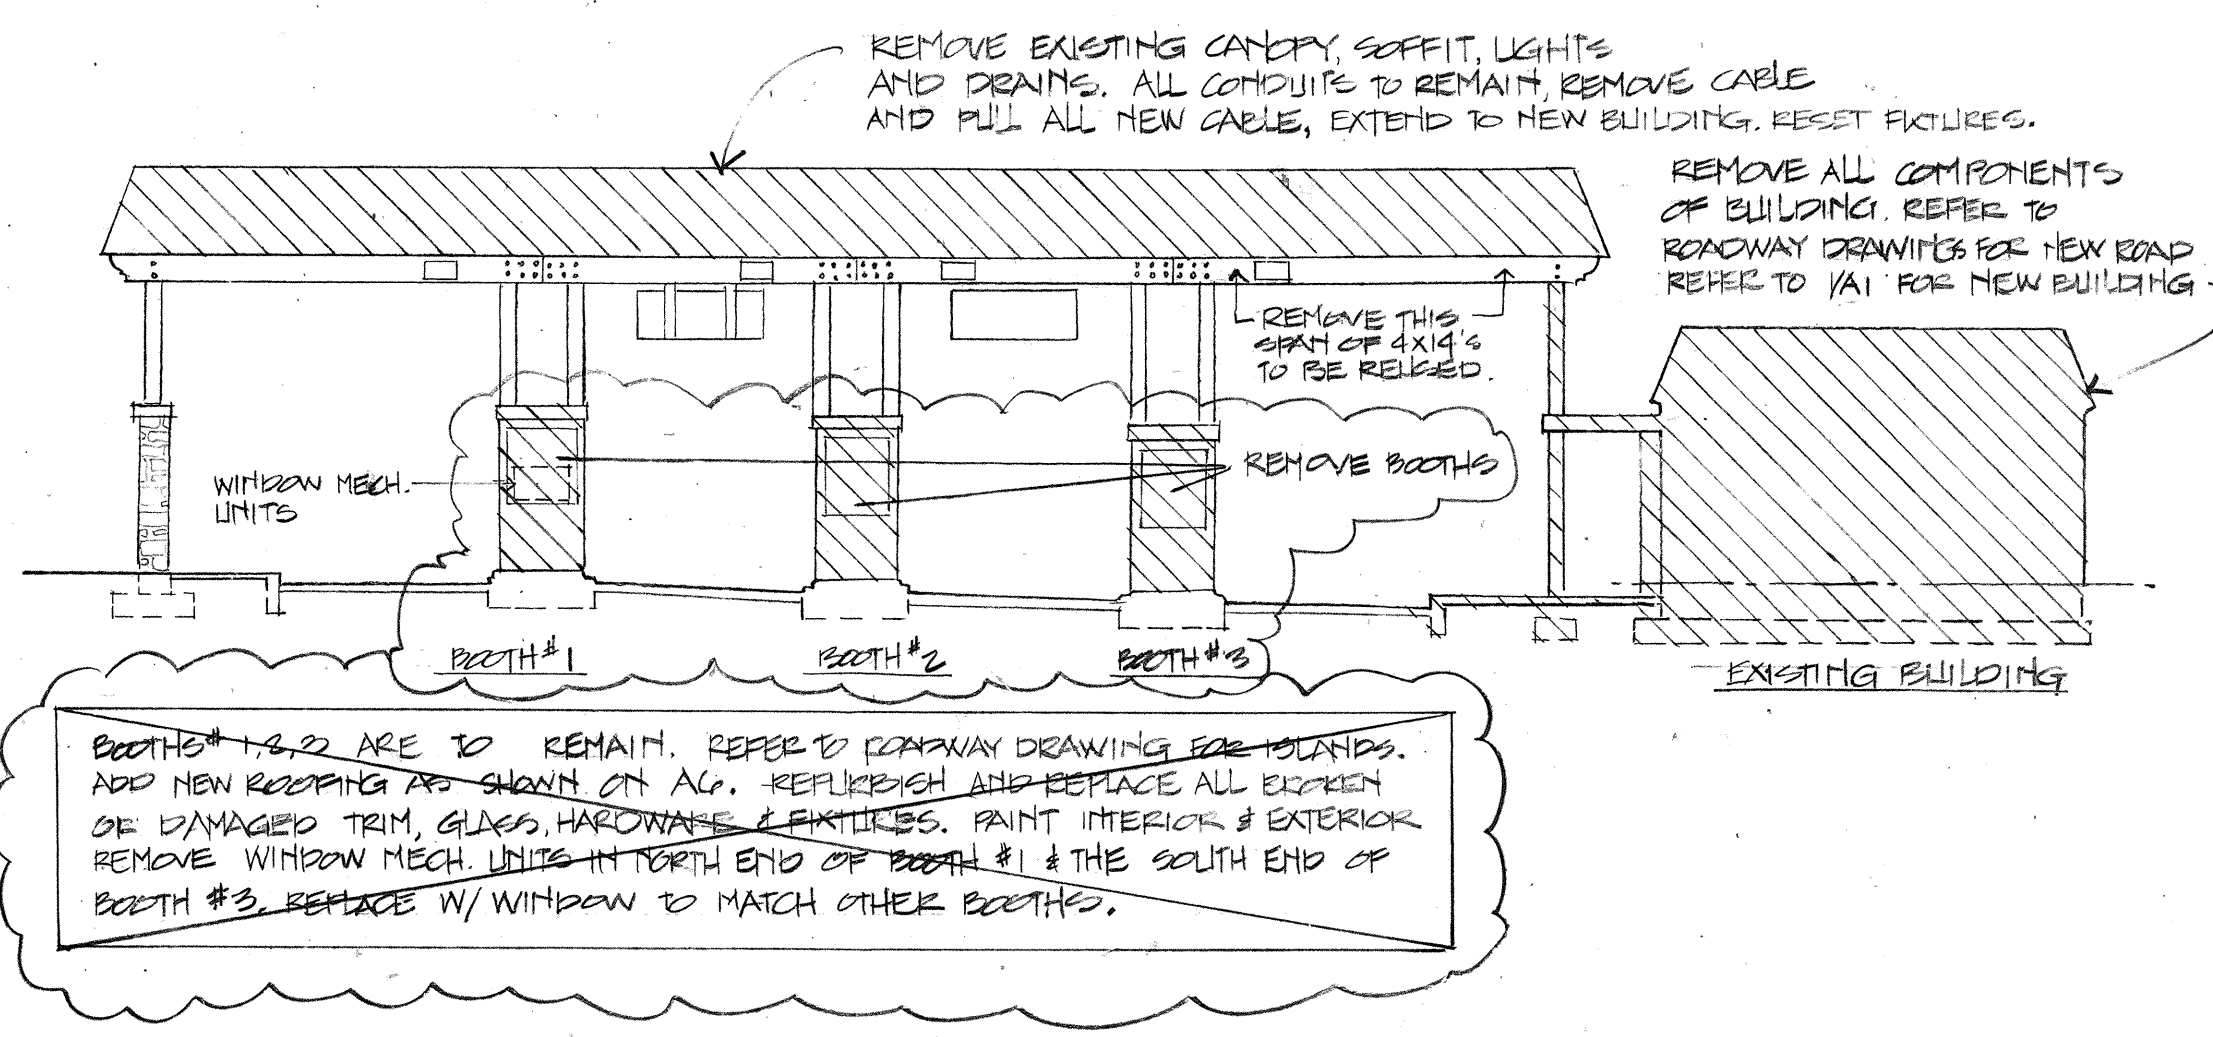 REMOVE EXISTING CANOPY, SOFFIT, LIGHTS
AND DRAINS. ALL CONDUITS TO REMAIN, REMOVE CABLE
AND PULL ALL NEW CABLE, EXTEND TO NEW BUILDING. RESET FIXTURES.
REMOVE ALL COMPONENTS
OF BUILDING. REFER TO
ROADWAY DRAWINGS FOR NEW ROAD
REFER TO 1/A1 FOR NEW BUILDING
REMOVE THIS
SPAN OF 4X14'S
TO BE REUSED.
REMOVE BOOTHS
WINDOW MECH.
UNITS
BOOTH #1
BOOTH #2
BOOTH #3
EXISTING BUILDING
BOOTHS# 1,2,3 ARE TO REMAIN. REFER TO ROADWAY DRAWING FOR ISLANDS.
ADD NEW ROOFING AS SHOWN ON A6. REFURBISH AND REPLACE ALL BROKEN
OR DAMAGED TRIM, GLASS, HARDWARE & FIXTURES. PAINT INTERIOR & EXTERIOR
REMOVE WINDOW MECH. UNITS IN NORTH END OF BOOTH #1 & THE SOUTH END OF
BOOTH #3. REPLACE W/ WINDOW TO MATCH OTHER BOOTHS.